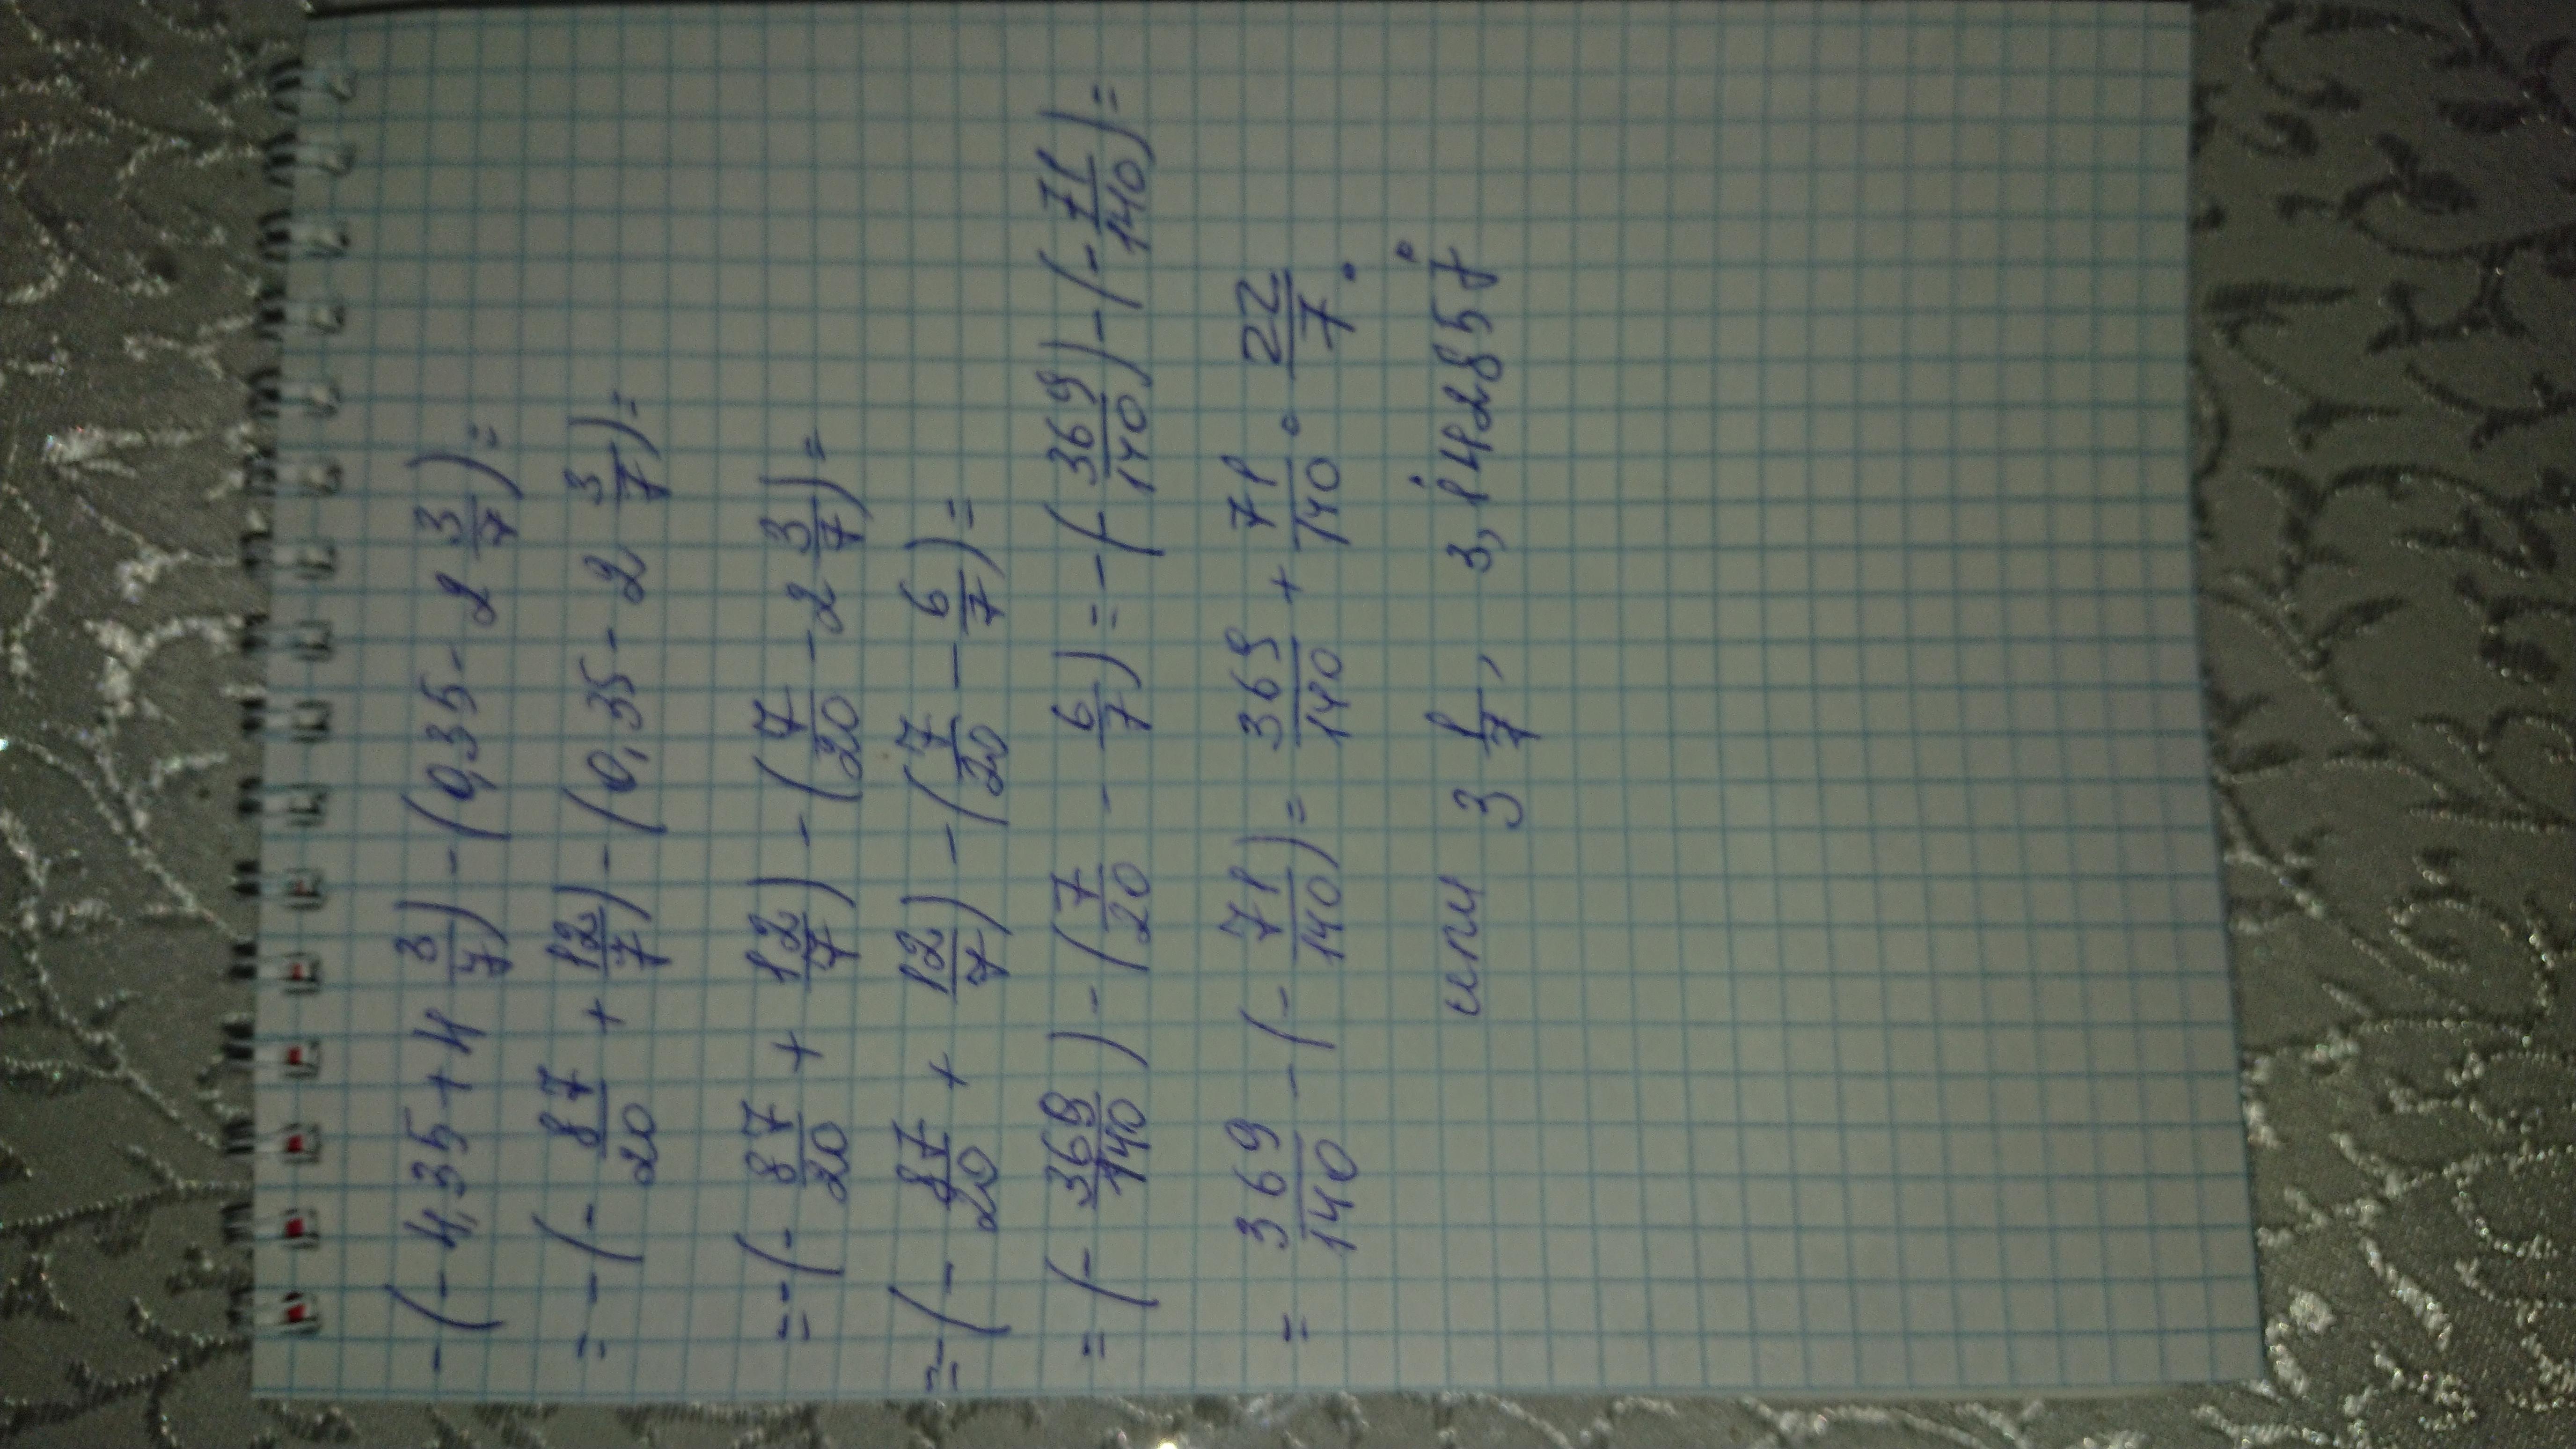 -(-4,35+4 3/7)-(0,35-2 3/7)=
=-(-87/20+12/7)-(0,35-2 3/7)=
=-(-87/20+12/7)-(7/20-2 3/7)=
=-(-87/20+12/7)-(7/20-6/7)=
=(-369/140)-(7/20-6/7)=-(369/140)-(-71/140)=
=369/140-(-71/140)=369/140+71/140. 22/7.
или 3 1/7, 3,1̇42857̇